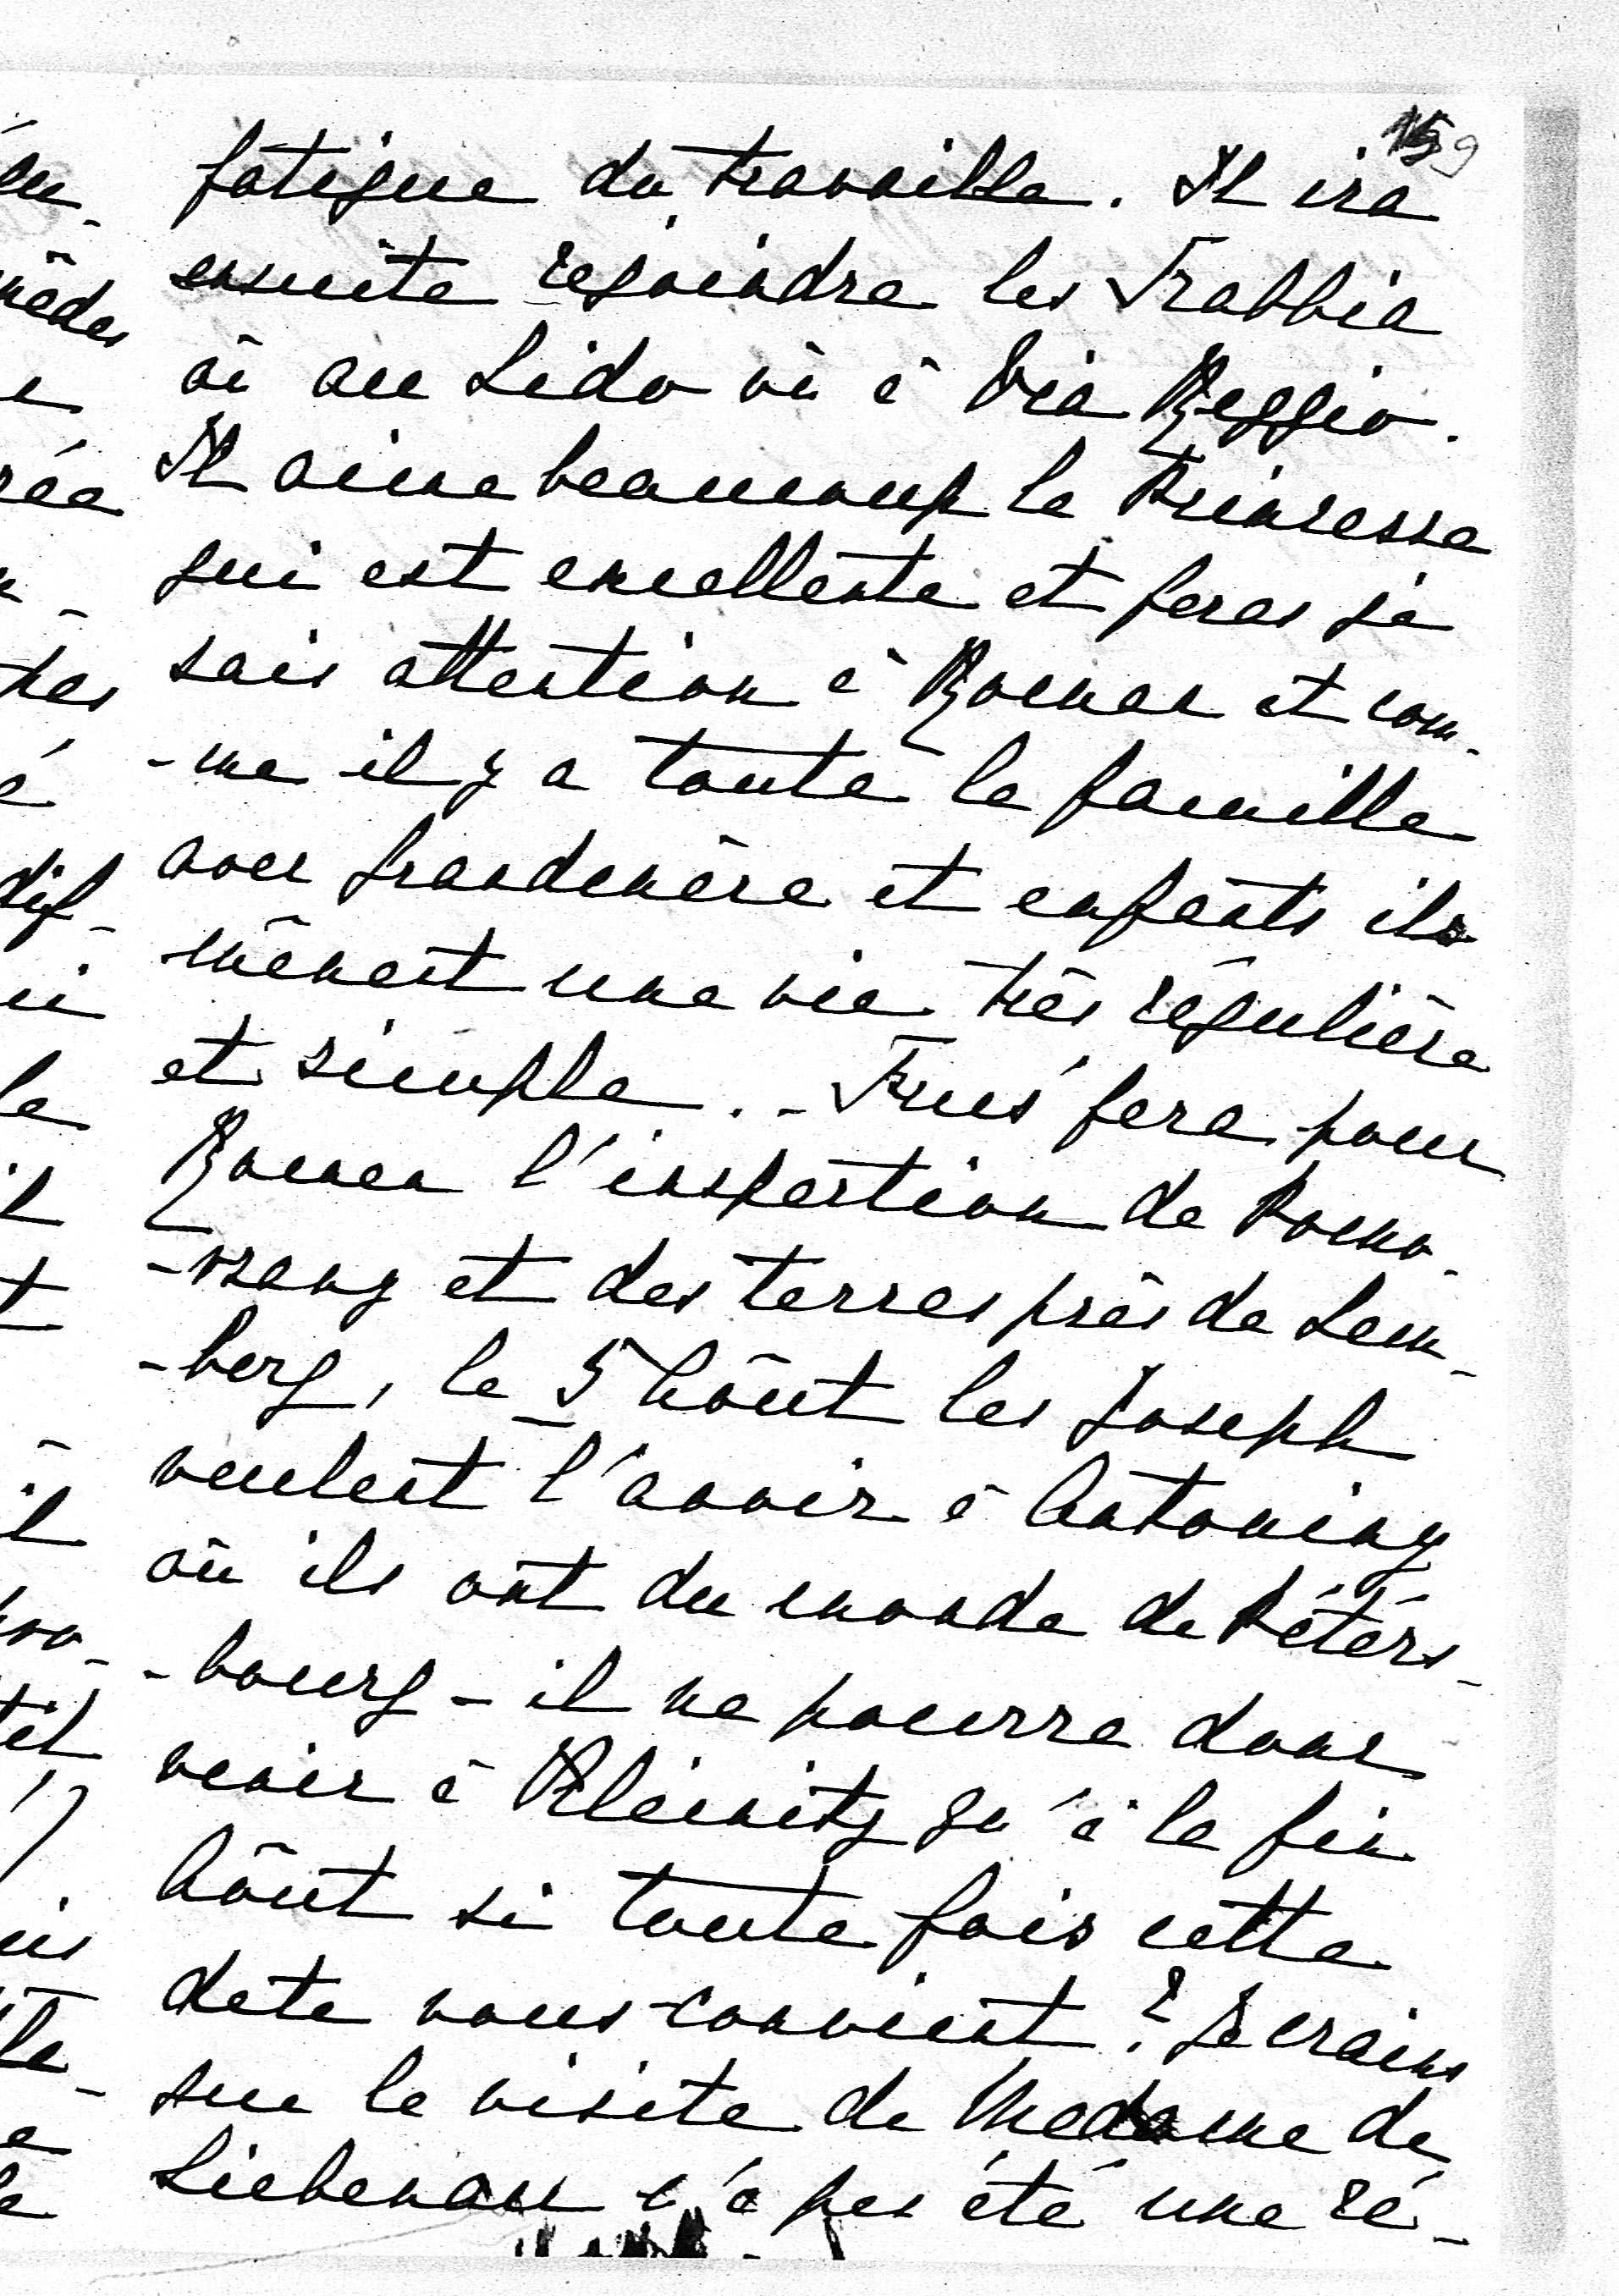 159
fatigue du travaille. Il ira
ensuite rejoindre les Trabbia
où au Lido où à Via Reggio.
Il aime beaucoup la Princesse
qui est excellente et feras je
sais attention à Roman et com-
-me il y a toute la famille
avec grandemère et enfants ils
mênent une vie très régulière
et simple. - Fruś fera pour
Roman l'inspection de Pomo-
-rzany et des terres près de Lem-
-berg, le 5 Août les Joseph
veulent l'avoir à Antoniny
où ils ont du monde de Péters-
-bourg - il ne pourra donc
venir à Kleinitz qu'à la fin
Août si toute fois cette
date vous convient? Je crains
que la visite de Madame de
Liebenau n'a pas été une ré-